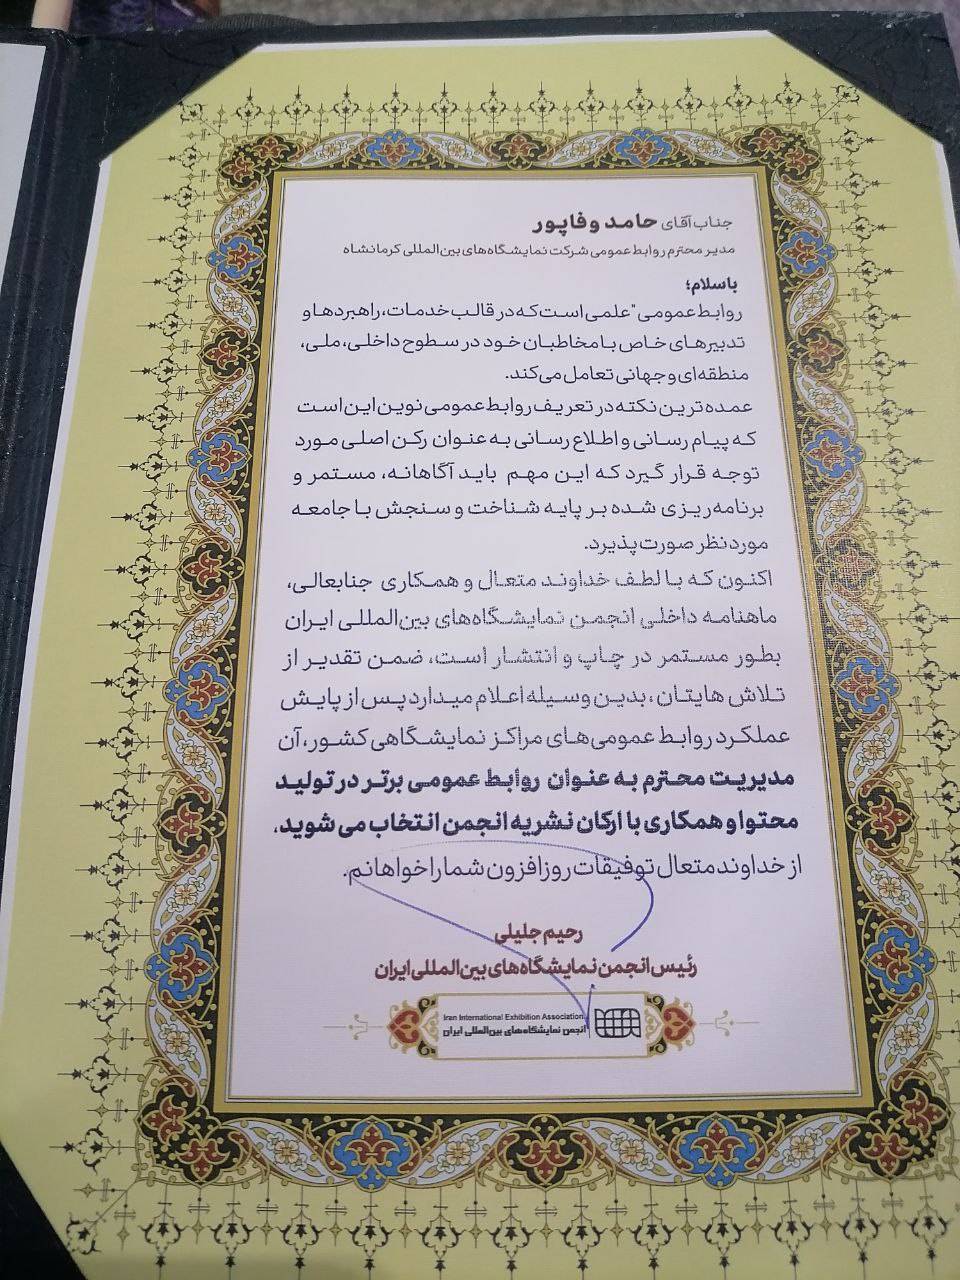 جناب آقای حامد وفاپور
مدیر محترم روابط عمومی شرکت نمایشگاه‌های بین‌المللی کرمانشاه
باسلام؛
روابط عمومی "علمی است که در قالب خدمات، راهبردها و
تدبیرهای خاص با مخاطبان خود در سطوح داخلی، ملی،
منطقه‌ای و جهانی تعامل می‌کند.
عمده ترین نکته در تعریف روابط عمومی نوین این است
که پیام رسانی و اطلاع رسانی به عنوان رکن اصلی مورد
توجه قرار گیرد که این مهم باید آگاهانه، مستمر و
برنامه‌ریزی شده بر پایه شناخت و سنجش با جامعه
مورد نظر صورت پذیرد.
اکنون که با لطف خداوند متعال و همکاری جنابعالی،
ماهنامه داخلی انجمن نمایشگاه‌های بین‌المللی ایران
بطور مستمر در چاپ و انتشار است، ضمن تقدیر از
تلاش هایتان، بدین وسیله اعلام میدارد پس از پایش
عملکرد روابط عمومی‌های مراکز نمایشگاهی کشور، آن
مدیریت محترم به عنوان روابط عمومی برتر در تولید
محتوا و همکاری با ارکان نشریه انجمن انتخاب می شوید.
از خداوند متعال توفیقات روزافزون شما را خواهانم.
رحیم جلیلی
رئیس انجمن نمایشگاه‌های بین‌المللی ایران
Iran International Exhibition Association
انجمن نمایشگاه‌های بین‌المللی ایران